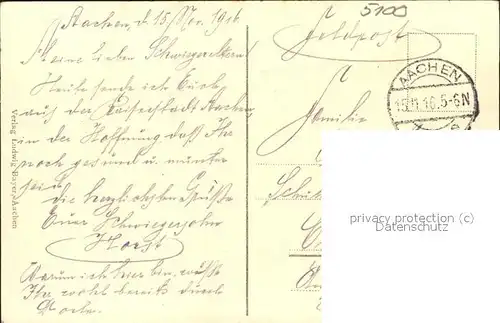 Aachen, d. 15. Nov. 1916
Meine lieben Schwiegereltern!
Heute sende ich Euch
aus der Kaiserstadt Aachen,
in der Hoffnung daß Ihr
noch gesund u. munter
seid
die herzlichsten Grüße
Euer Schwiegersohn
Horst
Warum ich hier bin, wißt
Ihr wohl bereits durch
Verlag Ludwig Bayer, Aachen
5100
Feldpost
AACHEN
15.11.16.5-6N
Familie
privacy protection (c)
Datenschutz